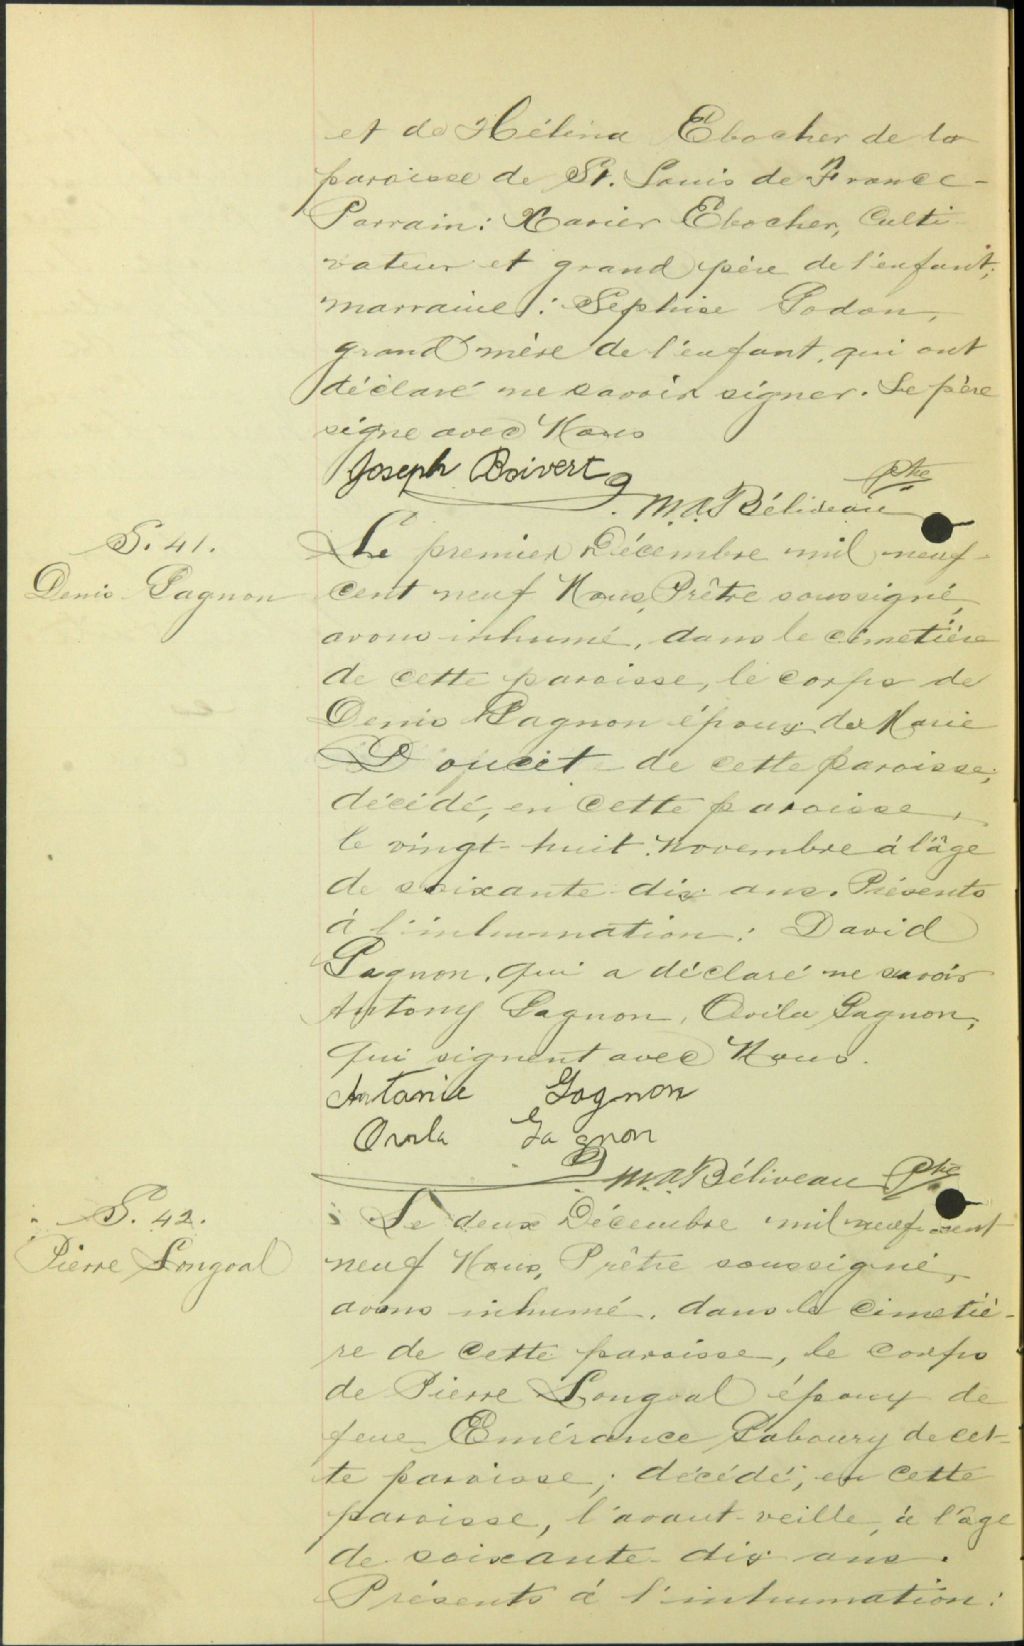 et de Hélèna Ebacher de la
paroisse de St. Louis de France -
Parrain: Xavier Ebacher, Culti-
vateur et grand père de l'enfant;
marraine: Sephise Godon,
grand'mère de l'enfant, qui ont
déclaré ne savoir signer. Le père
signe avec Nous
Joseph Boivert
M.A. Béliveau ptre
S. 41.
Denis Gagnon
Le premier Décembre mil neuf-
cent neuf Nous, Prêtre soussigné,
avons inhumé, dans le cimetière
de cette paroisse, le corps de
Denis Gagnon époux de Marie
Doucet de cette paroisse;
décédé, en cette paroisse,
le vingt-huit Novembre à l'âge
de soixante-dix ans. Présents
à l'inhumation: David
Gagnon, qui a déclaré ne savoir
Antony Gagnon, Ovila Gagnon,
qui signent avec Nous.
Antonie Gagnon
Ovila Gagnon
M.A. Béliveau Ptre
S. 42.
Pierre Longval
Le deux Décembre mil neuf-cent
neuf Nous, Prêtre soussigné,
avons inhumé, dans le cimetiè-
re de cette paroisse, le corps
de Pierre Longval époux de
feue Emérance Gaboury de cet-
te paroisse; décédé, en cette
paroisse, l'avant-veille, à l'âge
de soixante-dix ans.
Présents à l'inhumation: